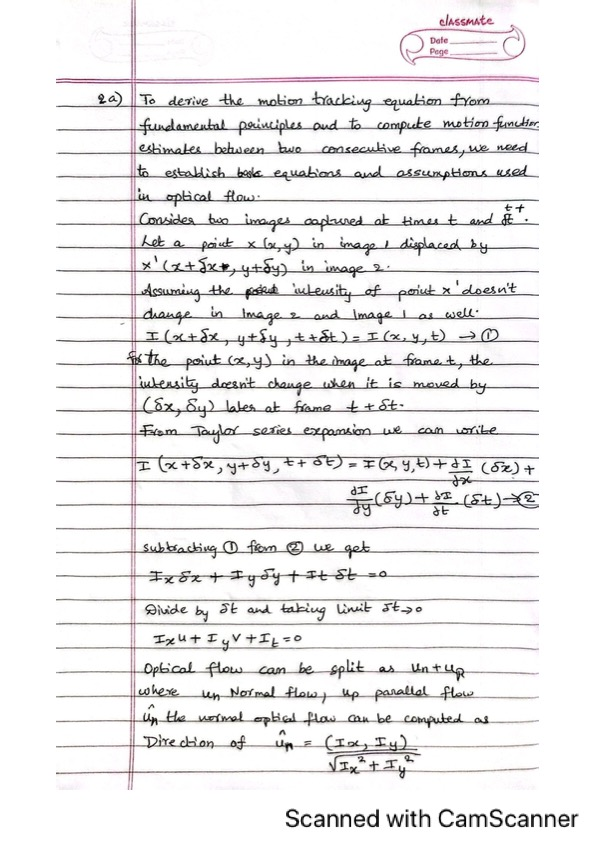 classmate
Date
Page
2a) To derive the motion tracking equation from
fundamental principles and to compute motion function
estimates between two consecutive frames, we need
to establish basic equations and assumptions used
in optical flow.
Consider two images captured at times t and t+δt.
Let a point x (x,y) in image 1 displaced by
x' (x+δx, y+δy) in image 2.
Assuming the intensity of point x' doesn't
change in Image 2 and Image 1 as well.
I (x+δx, y+δy, t+δt) = I (x, y, t) → ①
for the point (x,y) in the image at frame t, the
intensity doesn't change when it is moved by
(δx, δy) later at frame t + δt.
From Taylor series expansion we can write
I (x+δx, y+δy, t+δt) = I(x,y,t) + ∂I/∂x (δx) +
∂I/∂y (δy) + ∂I/∂t (δt) → ②
subtracting ① from ② we get
Ix δx + Iy δy + It δt = 0
Divide by δt and taking limit δt→0
Ixu + Iyv + It = 0
Optical flow can be split as un + up
where un Normal flow, up parallel flow
ûn the normal optical flow can be computed as
Direction of ûn = (Ix, Iy) / √Ix² + Iy²
Scanned with CamScanner